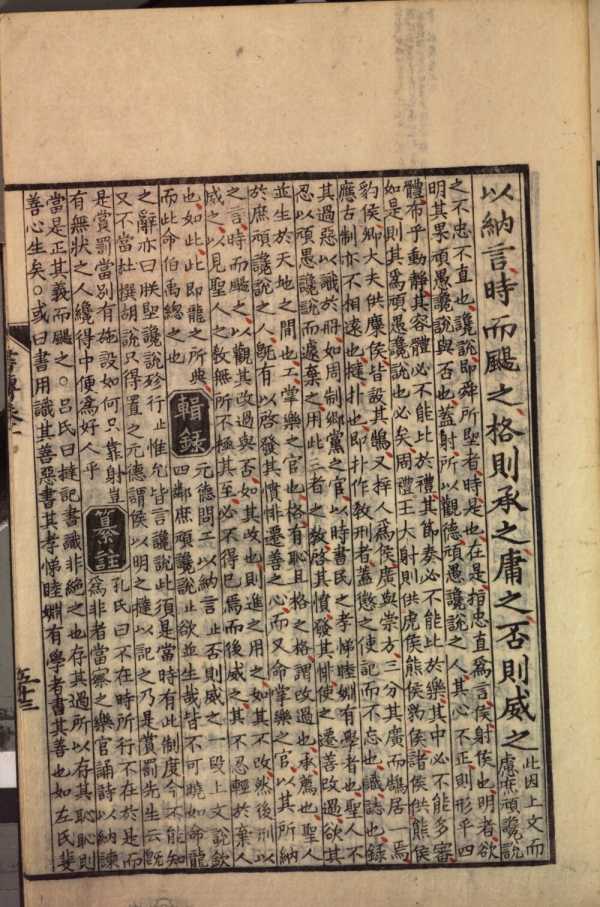 以納言時而颺之格則承之庸之否則威之此因上文而慮庶頑讒說
之不忠不直也讒說即舜所堲者時是也在是指忠直爲言侯射侯也明者欲
明其果頑愚讒說與否也蓋射所以觀德頑愚讒說之人其心不正則形乎四
體布乎動靜其容體必不能比於禮其節奏必不能比於樂其中必不能多審
如是則其爲頑愚讒說也必矣周禮王大射則供虎侯熊侯豹侯諸侯供熊侯
豹侯卿大夫供麋侯皆設其鵠又梓人爲侯廣與崇方三分其廣而鵠居一焉
應古制亦不相遠也撻扑也即扑作教刑者蓋懲之使記而不忘也識誌也錄
其過惡以識於冊如周制鄉黨之官以時書民之孝悌睦婣有學者也聖人不
忍以頑愚讒說而遽棄之用此三者之教啓其憤發其悱使之遷善改過欲其
並生於天地之間也工掌樂之官也格有恥且格之格謂改過也承薦也聖人
於庶頑讒說之人旣有以啓發其憤悱遷善之心而又命掌樂之官以其所納
之言時而颺之以觀其改過與否如其改也則進之用之如其不改然後刑以
威之以見聖人之敎無所不極其至必不得已焉而後威之其不忍輕於棄人
也如此此即龍之所典
而此命伯禹總之也
輯錄
元德問工以納言止否則威之一段上文說欽
四鄰庶頑讒說止欲並生哉皆不可曉如命龍
之辭亦曰朕堲讒說殄行止惟允皆言讒說此須是當時有此制度今不能知
又不當杜撰胡說只得置之元德謂侯以明之撻以記之乃是賞罰先生云旣
是賞罰當別有施設如何只靠射豈
有無狀之人纔得中便爲好人乎
纂註
孔氏曰不在時所行不在於是而
爲非者當察之樂官誦詩以納諫
當是正其義而颺之○呂氏曰撻記書識非絶之也存其過所以存其恥恥則
善心生矣○或曰書用識其善惡書其孝悌睦婣有學者書其善也如左氏斐
書傳卷一
五十三